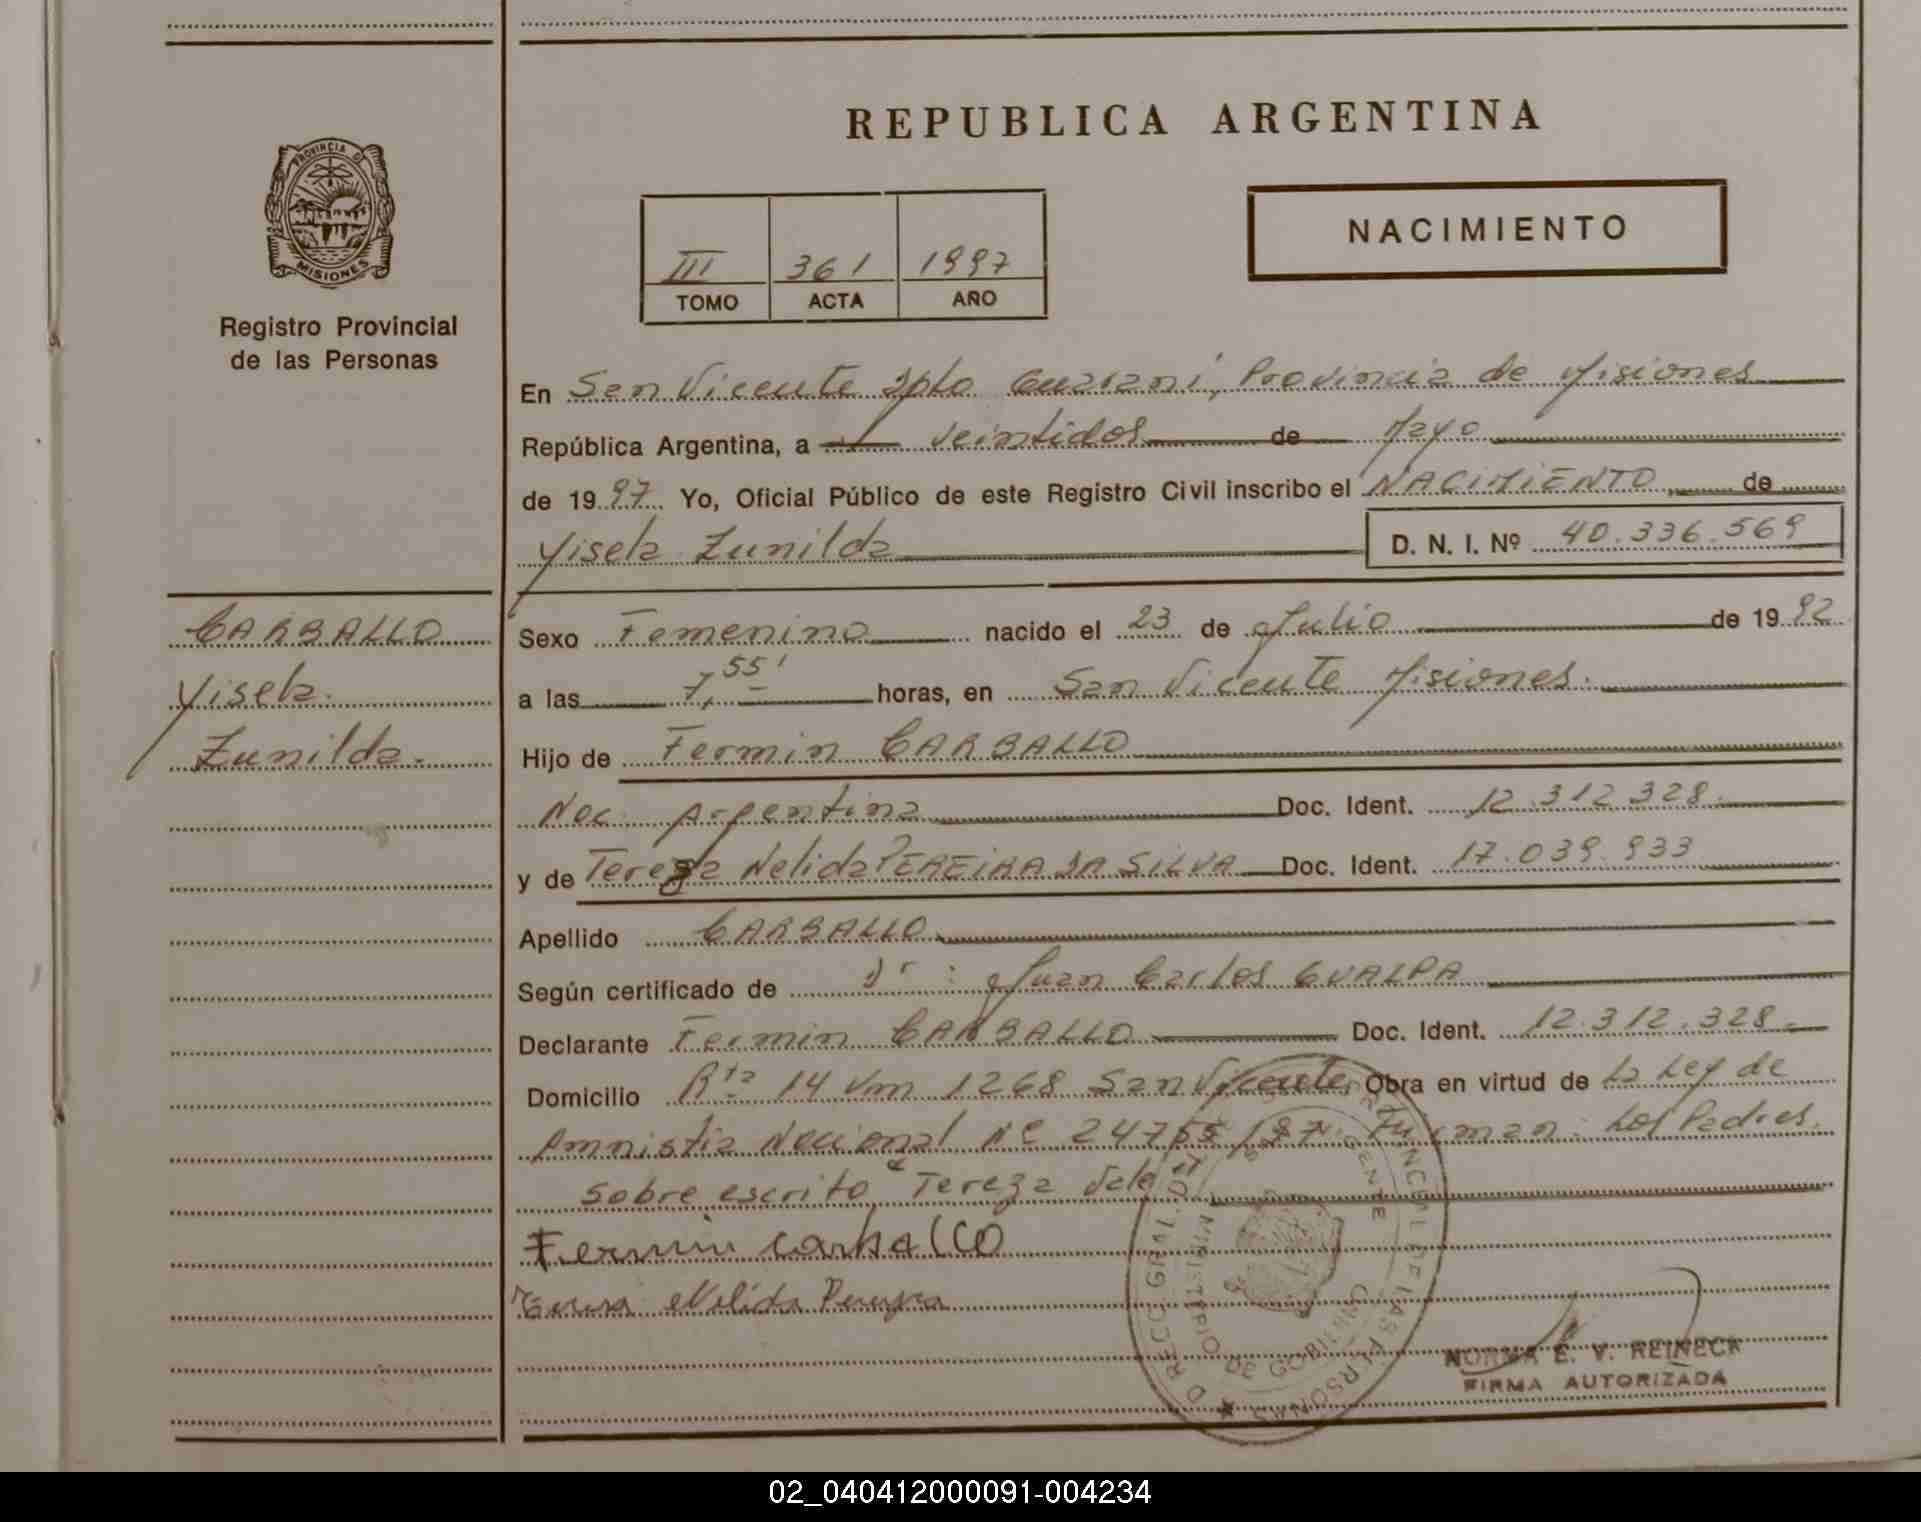 REPUBLICA ARGENTINA
PROVINCIA DE
MISIONES
Registro Provincial
de las Personas
NACIMIENTO
III 361 1997
TOMO ACTA AÑO
En San Vicente Dpto Guarani, Provincia de Misiones
República Argentina, a veintidos de Mayo
de 1997. Yo, Oficial Público de este Registro Civil inscribo el NACIMIENTO de
Yisela Zunilda
D. N. I. Nº 40.336.569
CARBALLO
Yisela.
Zunilda.
Sexo Femenino nacido el 23 de Julio de 1992
a las 7,55' horas, en San Vicente Misiones.
Hijo de Fermin CARBALLO
Nac. Argentina Doc. Ident. 12.312.328.
y de Tereza Nelida PEREIRA DA SILVA Doc. Ident. 17.039.933
Apellido CARBALLO
Según certificado de Dr: Juan Carlos GUALPA
Declarante Fermin CARBALLO Doc. Ident. 12.312.328.
Domicilio Rta 14 Km 1268 San Vicente Obra en virtud de La Ley de
Amnistia Nacional Nº 24755/97. Firman: Los Padres.
Sobre escrito "Tereza Vale"
Fermin carballo
Teresa Nelida Pereyra
NORMA E. V. REINECK
FIRMA AUTORIZADA
02_040412000091-004234